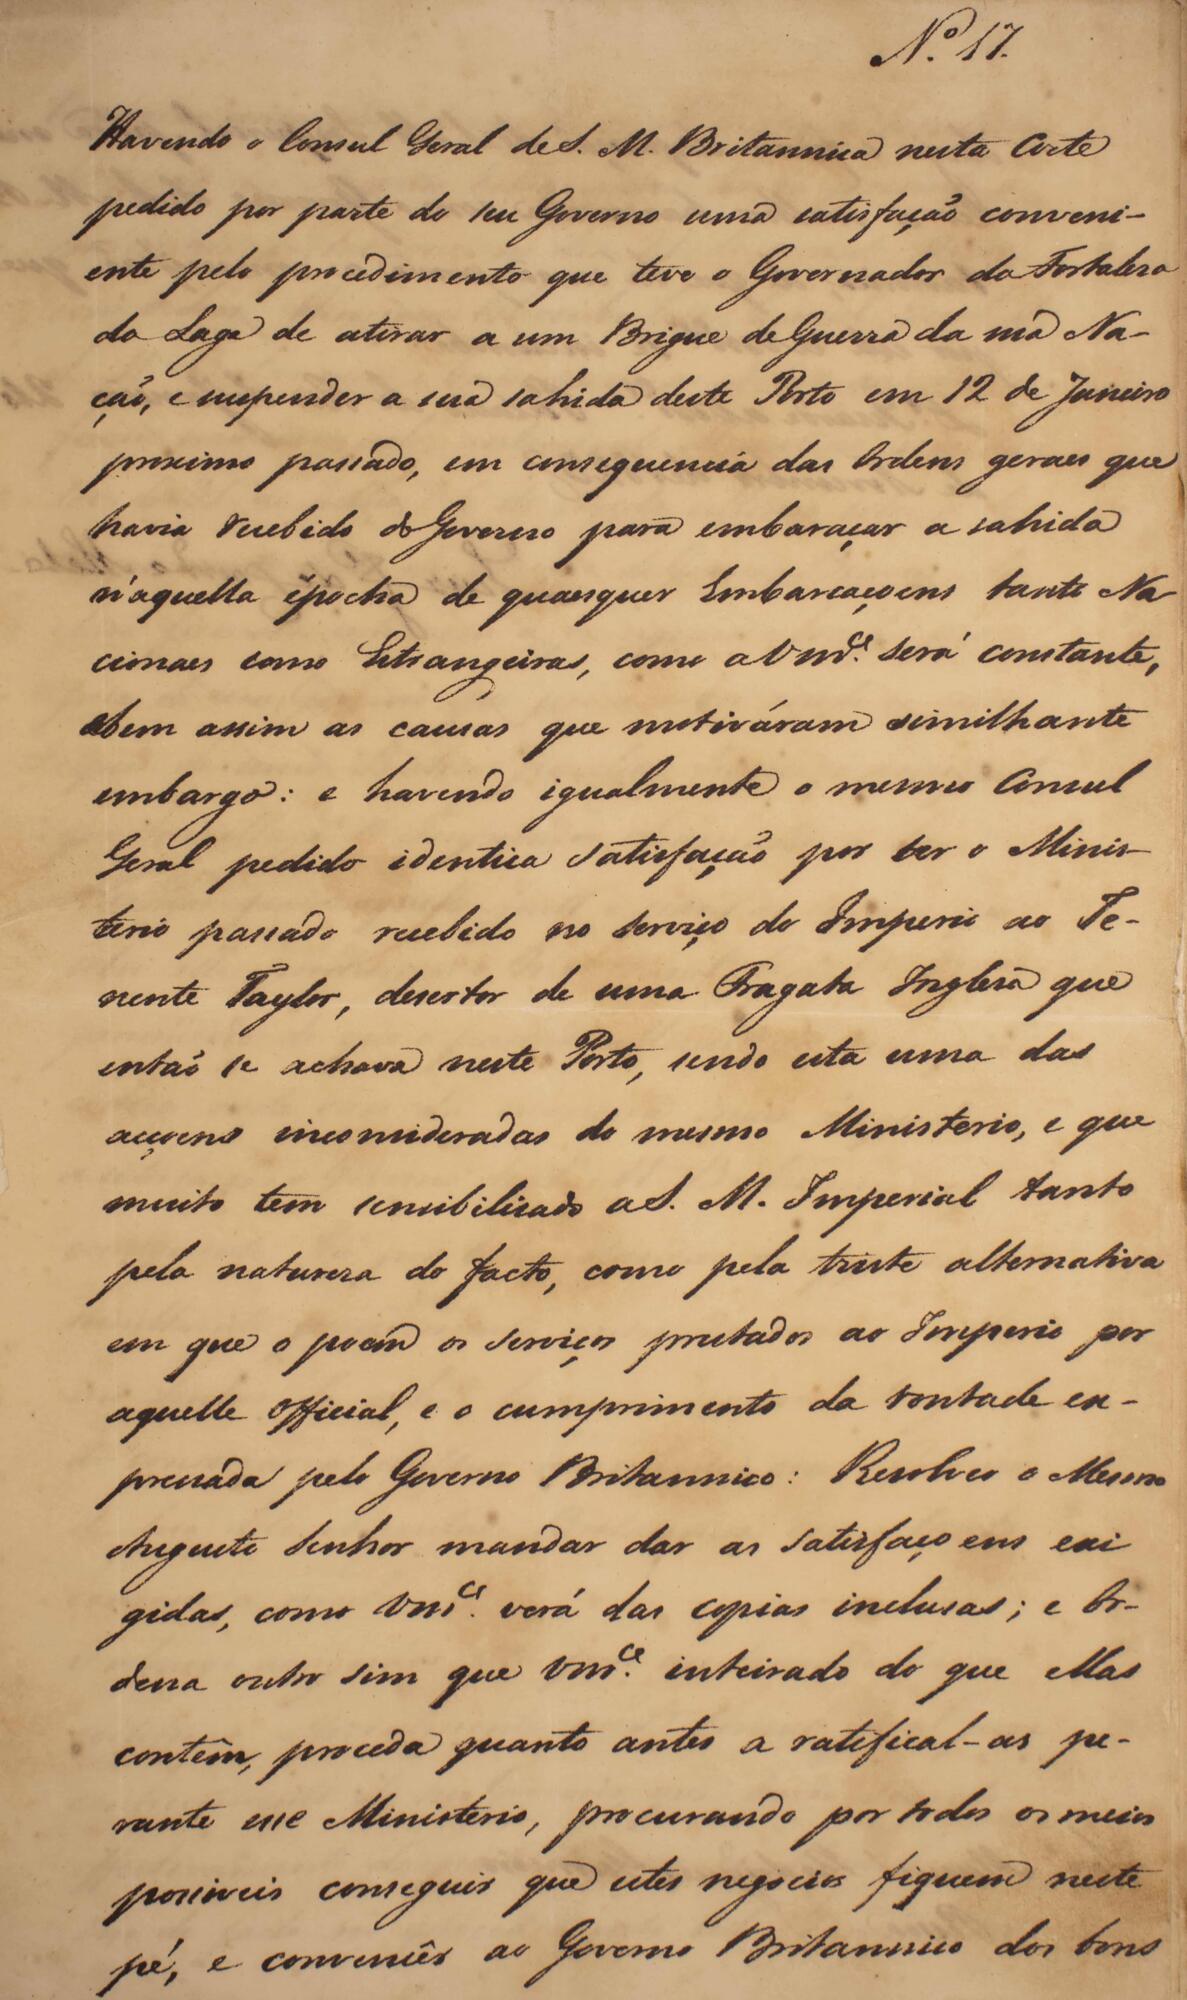 Nº. 17.
Havendo o Consul Geral de S. M. Britannica nesta Corte
pedido por parte do seu Governo uma satisfação conveni-
ente pelo procedimento que teve o Governador da Fortaleza
da Lage de atirar a um Brigue de Guerra da sua Na-
ção, e suspender a sua sahida deste Porto em 12 de Janeiro
proximo passado, em consequencia das Ordens geraes que
havia recebido do Governo para embaraçar a sahida
n'aquella épocha de quaesquer Embarcaçoens tanto Na-
cionaes como Estrangeiras, como a Vmce. será constante,
e bem assim as causas que motiváram similhante
embargo: e havendo igualmente o mesmo Consul
Geral pedido identica satisfação por ter o Minis-
terio passado recebido no serviço do Imperio ao Te-
nente Taylor, desertor de uma Fragata Ingleza que
então se achava neste Porto, sendo esta uma das
acçoens inconsideradas do mesmo Ministerio, e que
muito tem sensibilisado a S. M. Imperial tanto
pela natureza do facto, como pela triste alternativa
em que o poem os serviços prestados ao Imperio por
aquelle Official, e o cumprimento da vontade ex-
pressada pelo Governo Britannico: Resolveo o Mesmo
Augusto Senhor mandar dar as satisfaçoens exi
gidas, como Vmce. verá das copias inclusas; e Or-
dena outro sim que Vmce. inteirado do que Ellas
contêm, proceda quanto antes a ratifical-as pe-
rante esse Ministerio, procurando por todos os meios
possiveis conseguir que estes negocios fiquem neste
pé, e convencêr ao Governo Britannico dos bons